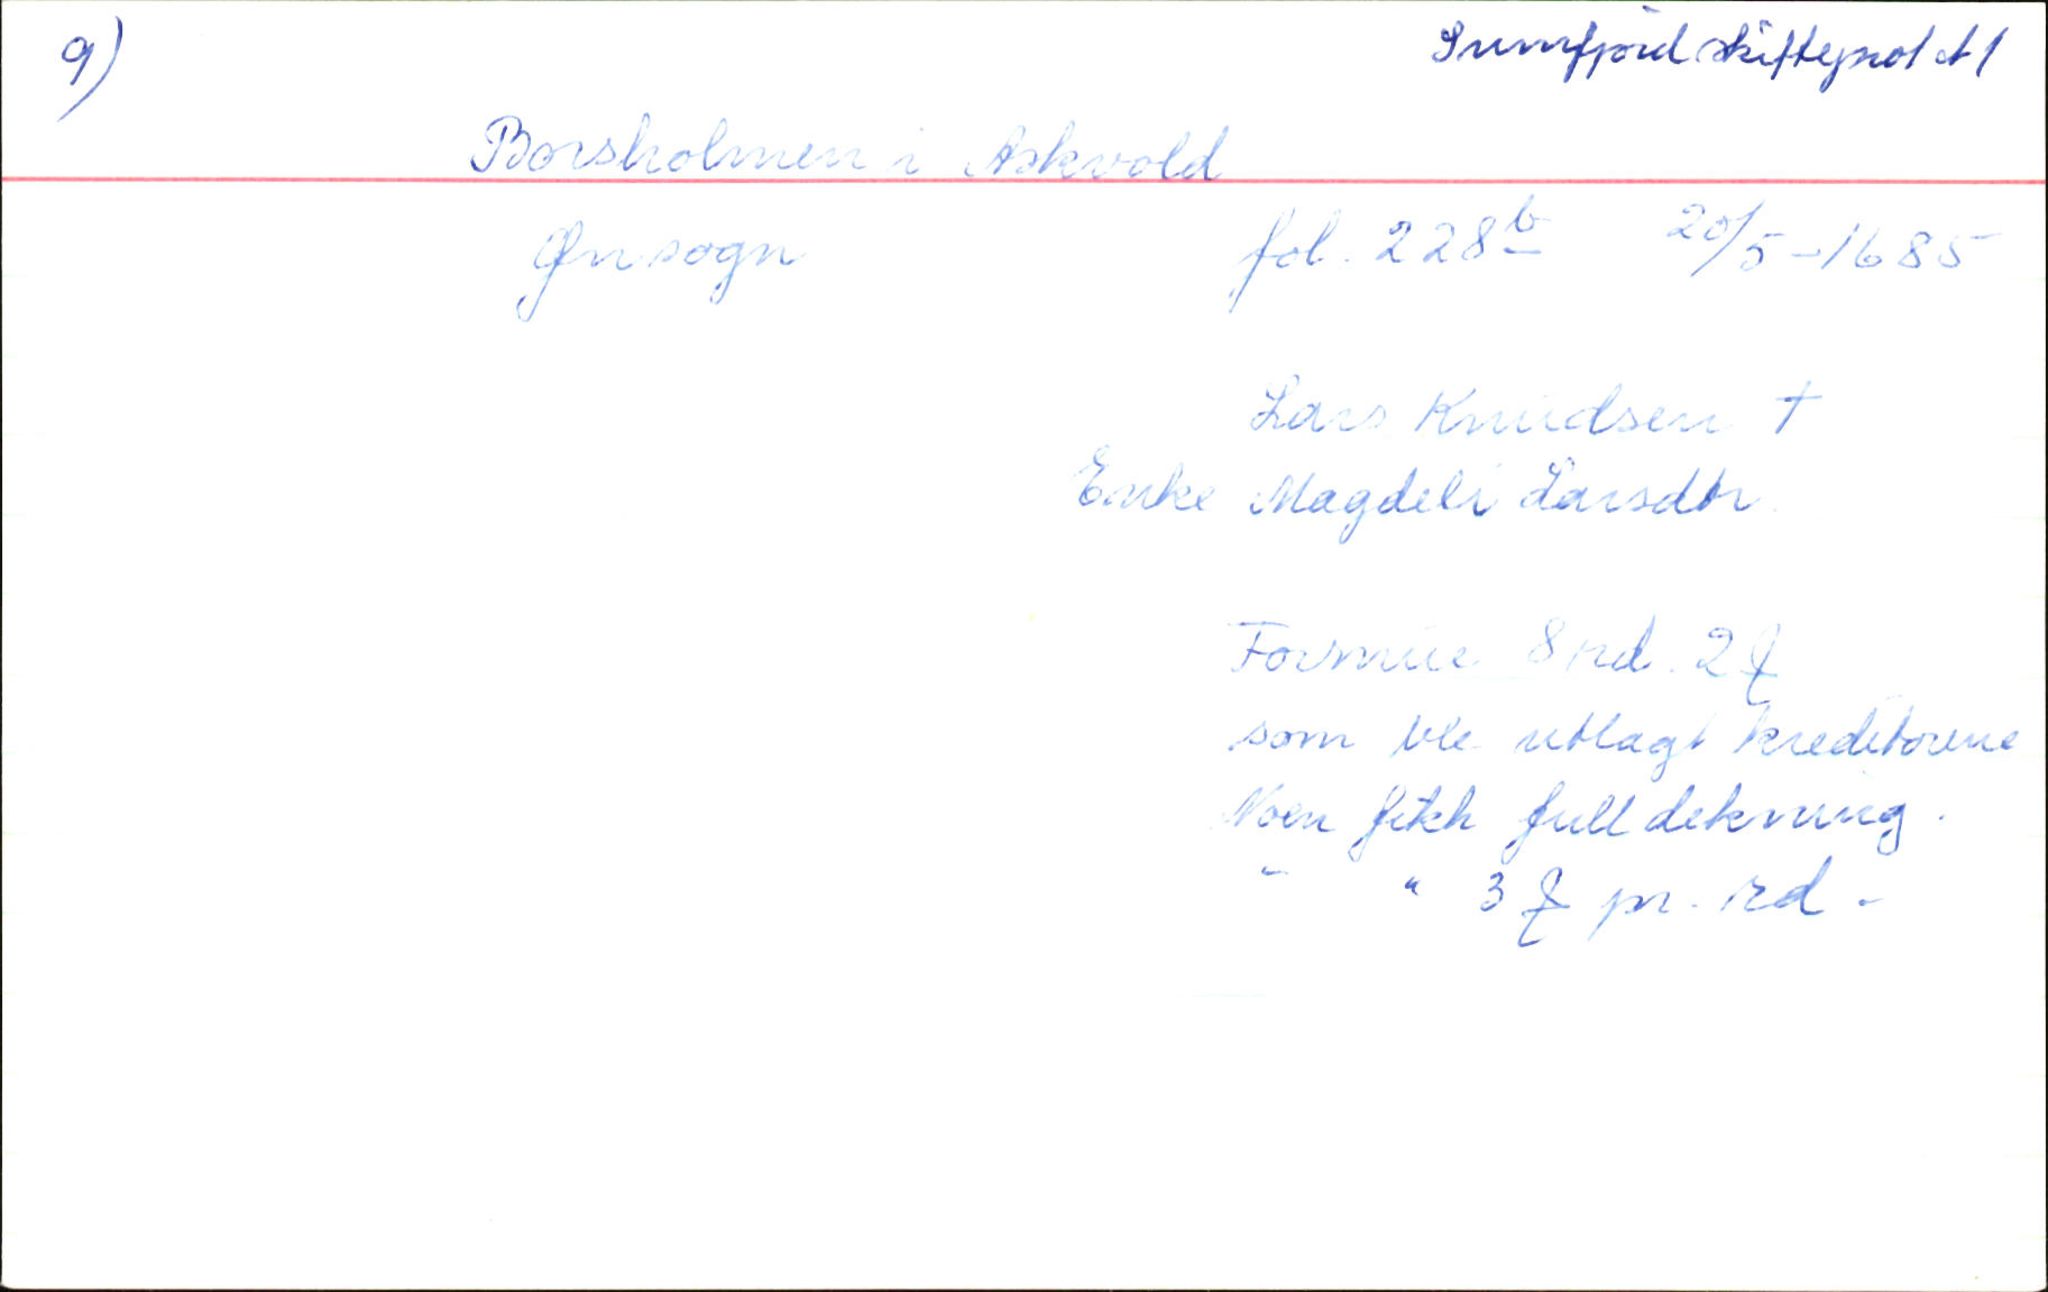 9)
Sunnfjord skifteprot A1
Borsholmen i Askvold
Øn sogn fol. 228b 20/5-1685
Lars Knudsen †
Enke Magdeli Larsdtr
Formue 8 rd. 2 ꝸ
som ble utlagt kreditorene
Noen fikk full dekning.
" " 3 ꝸ pr. rd.